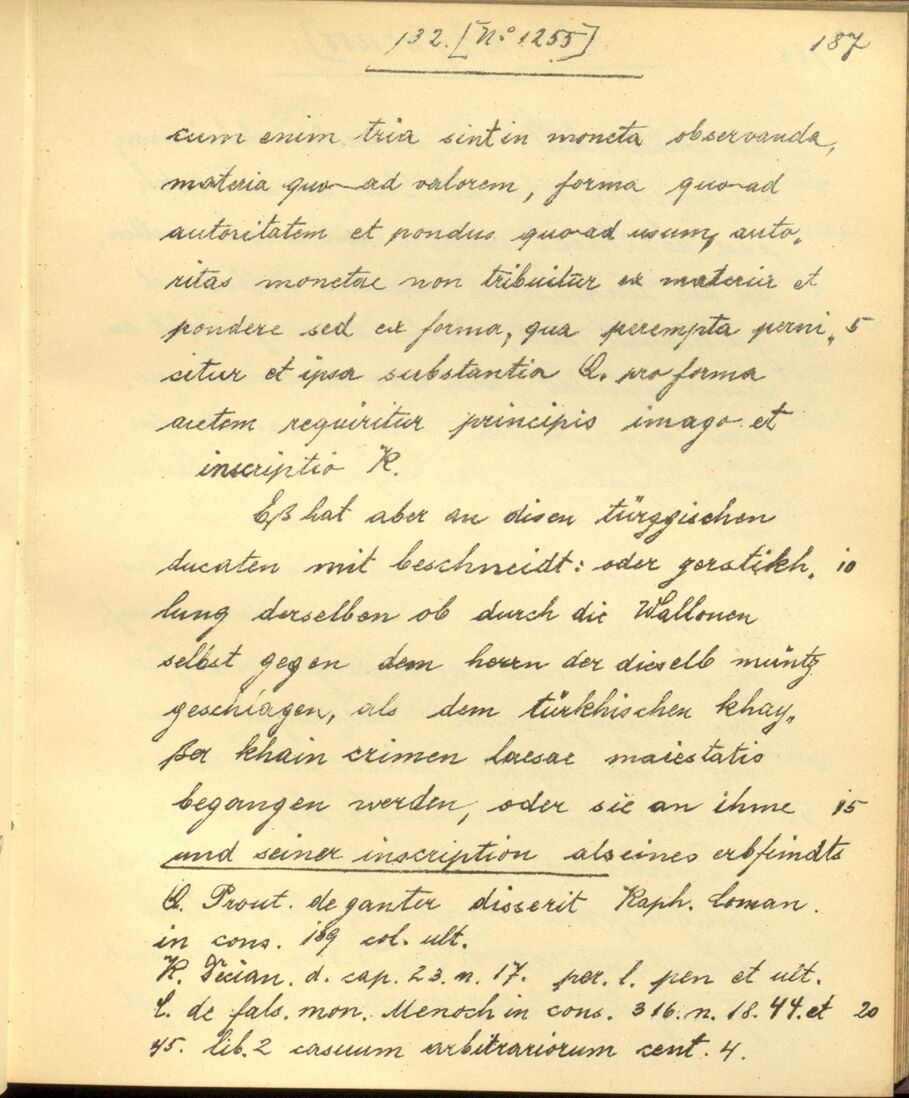 132. [No 1255]
187
cum enim tria sint in moneta observanda,
materia quo ad valorem, forma quo ad
autoritatem et pondus quo ad usum, auto„
ritas monetae non tribuitur ex materia et
pondere sed ex forma, qua perempta perni„ 5
citur et ipsa substantia Q. pro forma
autem requiritur principis imago et
inscriptio R.
Eß hat aber an disen türggischen
ducaten mit beschneidt: oder zerstikh„ 10
lung derselben ob durch die Wallonen
selbst gegen dem herrn der dieselb müntz
geschlagen, als dem türkhischen khay„
ßer khain crimen laesae maiestatis
begangen werden, oder sie an ihme 15
und seiner inscription als eines erbfeindts
Q. Prout. de ganter disserit Raph. Coman.
in cons. 189 col. ult.
R. Decian. d. cap. 23. n. 17. per. l. pen et ult.
C. de fals. mon. Menoch in cons. 316. n. 18. 44. et 20
45. lib. 2 casuum arbitrariorum cent. 4.